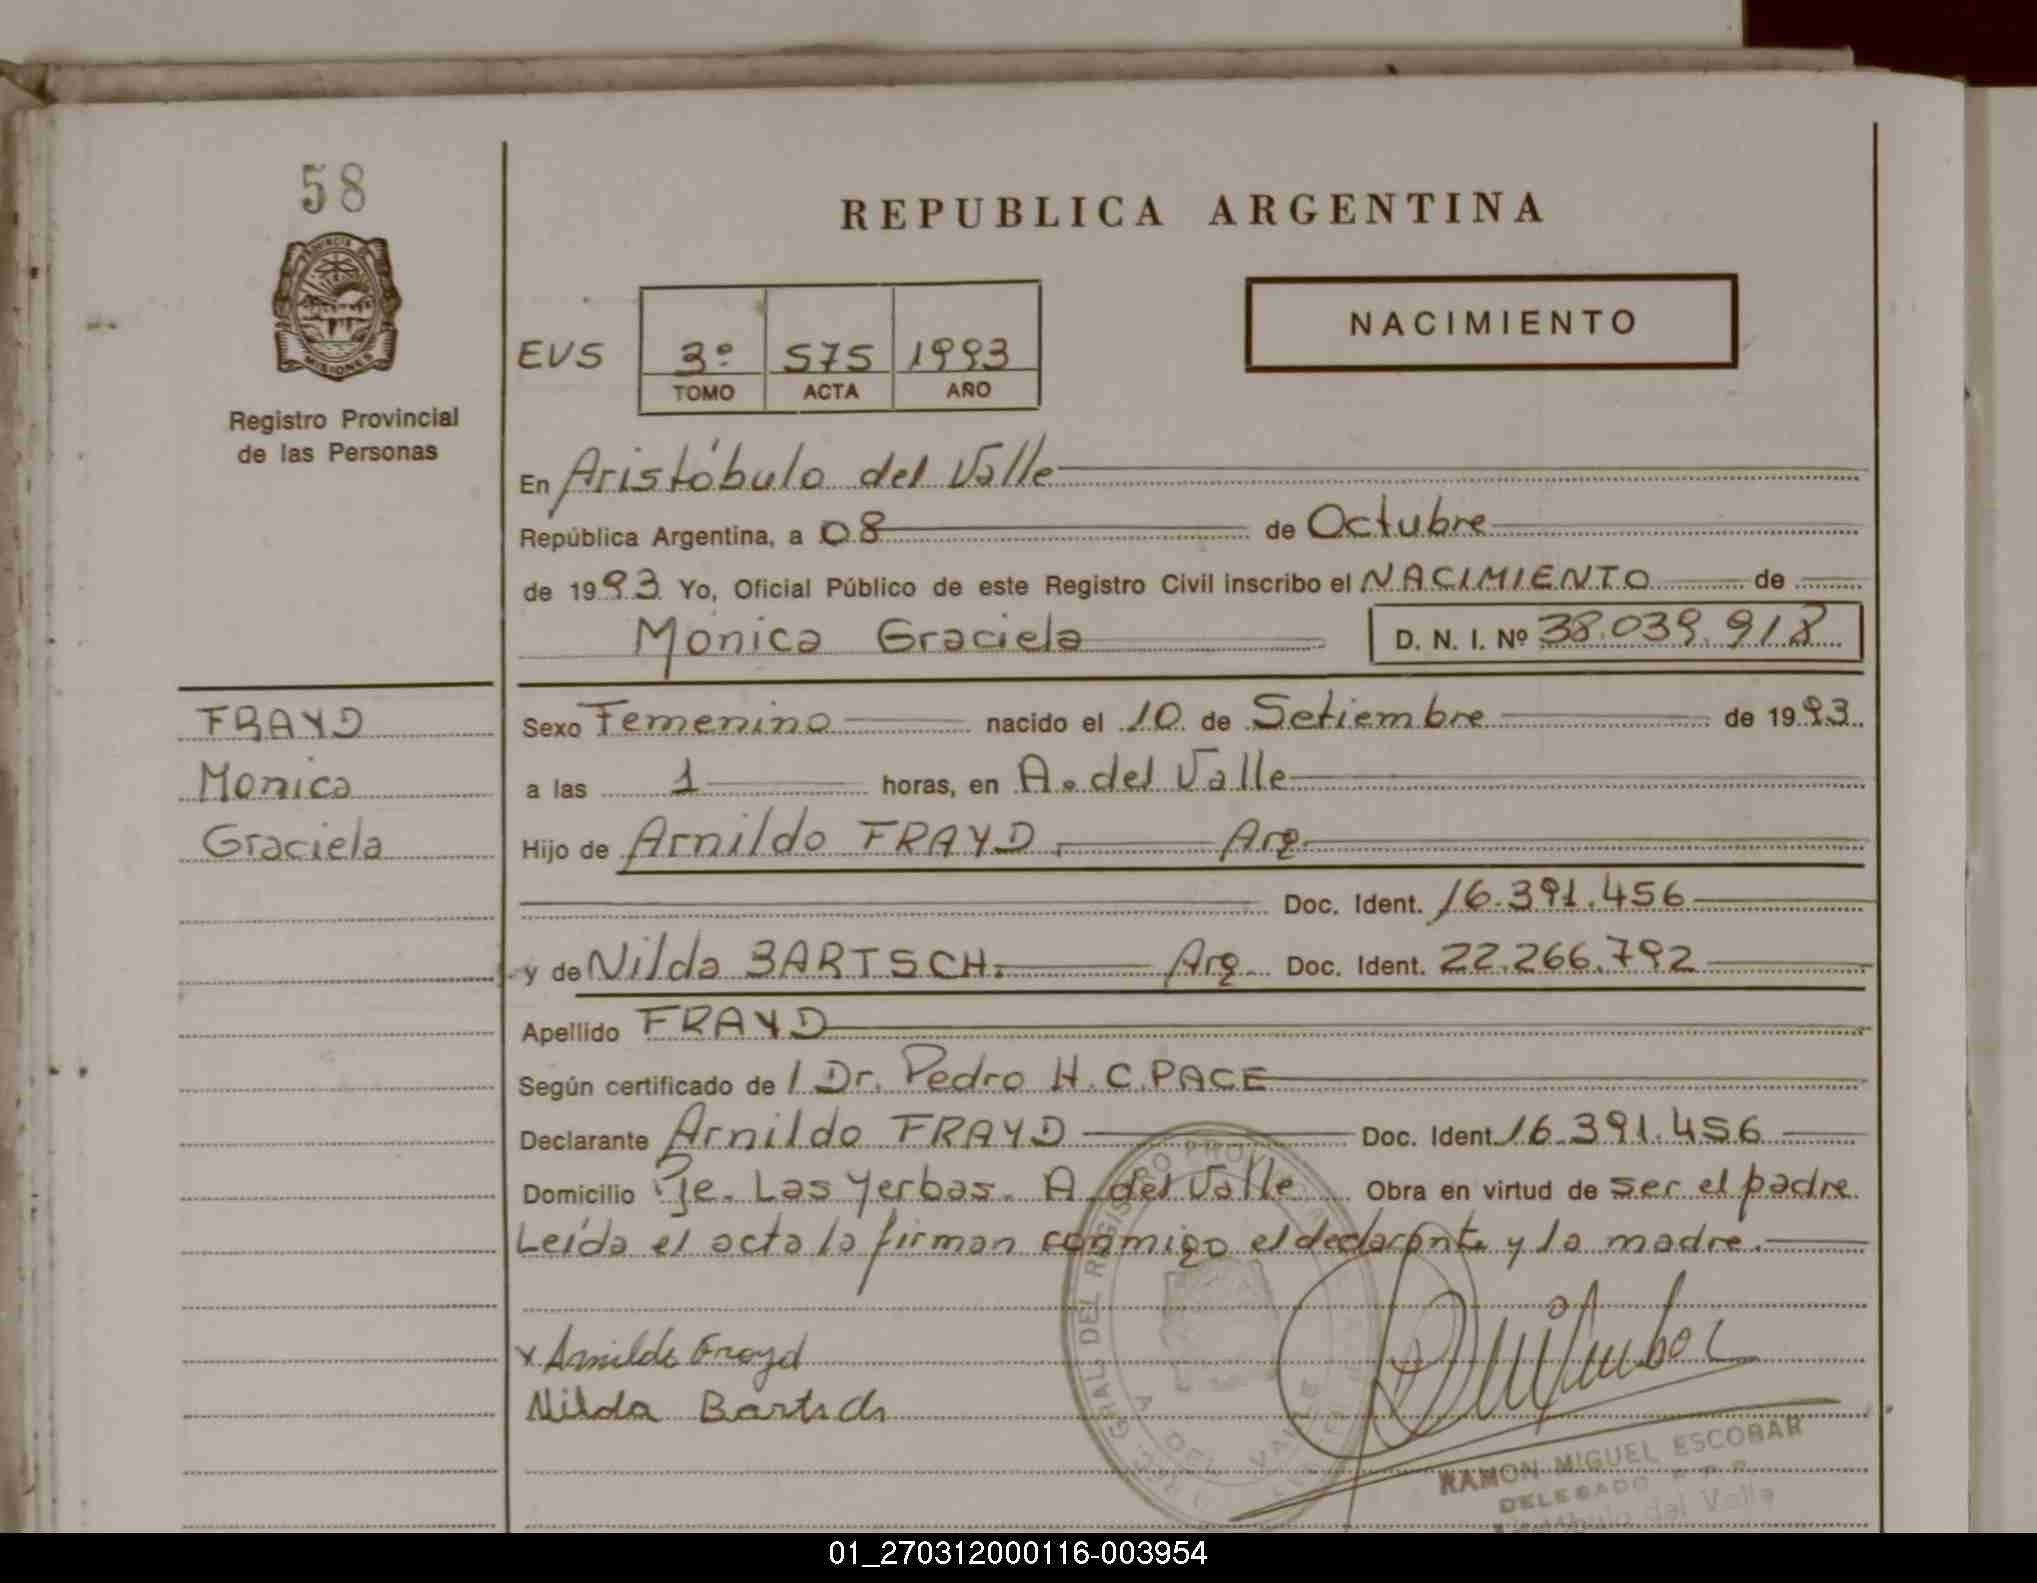 58
PROVINCIA
MISIONES
Registro Provincial
de las Personas
REPUBLICA ARGENTINA
NACIMIENTO
EVS 3º 575 1993
TOMO ACTA AÑO
En Aristóbulo del Valle
República Argentina, a 08 de Octubre
de 1993 Yo, Oficial Público de este Registro Civil inscribo el NACIMIENTO de
Monica Graciela D. N. I. Nº 38.039.918
FRAYD
Monica
Graciela
Sexo Femenino nacido el 10 de Setiembre de 1993
a las 1 horas, en A. del Valle
Hijo de Arnildo FRAYD Arg.
Doc. Ident. 16.391.456
y de Nilda BARTSCH. Arg. Doc. Ident. 22.266.792
Apellido FRAYD
Según certificado de / Dr. Pedro H. C. PACE
Declarante Arnildo FRAYD Doc. Ident. 16.391.456
Domicilio Pje. Las Yerbas. A. del Valle Obra en virtud de ser el padre
Leída el acta la firman conmigo el declarante y la madre.
x Arnildo Frayd
Nilda Bartsch
GRAL DEL REGISTRO PROVIN
A DEL VALLE
RAMON MIGUEL ESCOBAR
DELEGADO
del Valle
01_270312000116-003954